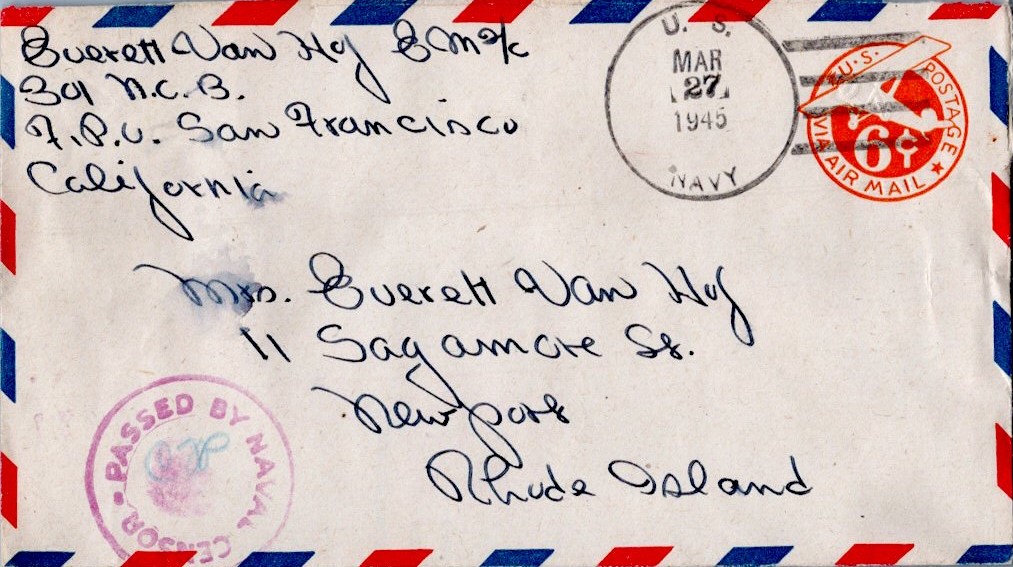 Everett Van Hof EM 2/c
301 N.C.B.
F.P.O. San Francisco
California
U. S.
MAR
27
1945
NAVY
U.S. POSTAGE
6¢
VIA AIR MAIL
Mrs. Everett Van Hof
11 Sagamore St.
Newport
Rhode Island
PASSED BY NAVAL CENSOR